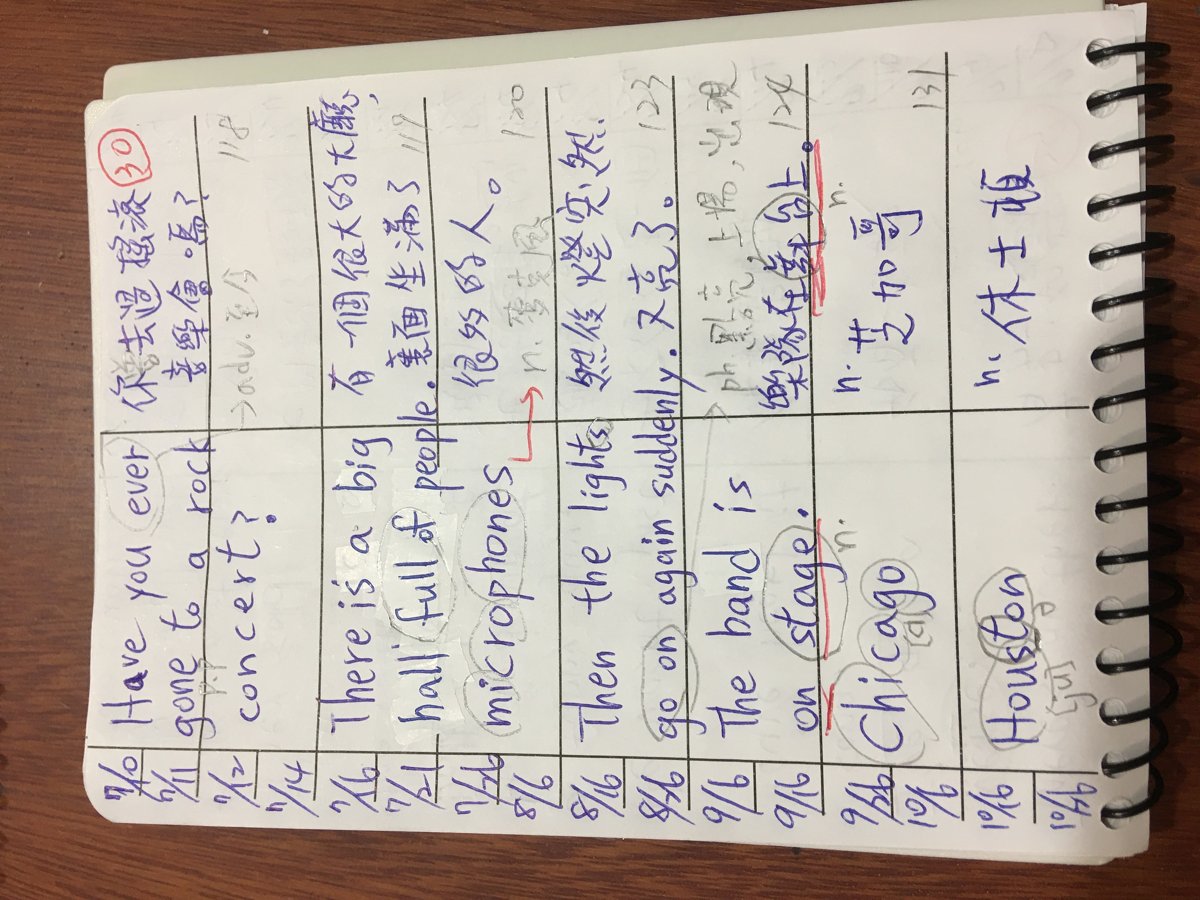 30
7/10
7/11
7/12
7/14
Have you ever
gone to a rock
p.p
concert?
你曾去過搖滾
音樂會嗎?
→adv. 至今
118
7/16
7/21
7/26
8/6
There is a big
hall full of people.
microphones
有一個很大的大廳,
裏面坐滿了
119
很多的人。
→ n. 麥克風
120
8/16
8/26
Then the lights
go on again suddenly.
然後燈突然
又亮了。
123
9/6
9/16
The band is
on stage.
n.
ph 點亮, 上場, 出現
樂隊在舞台上。
124
n.
9/26
10/6
Chicago
[a]
n. 芝加哥
131
10/16
10/26
Houston
[hju]
ə
n. 休士頓